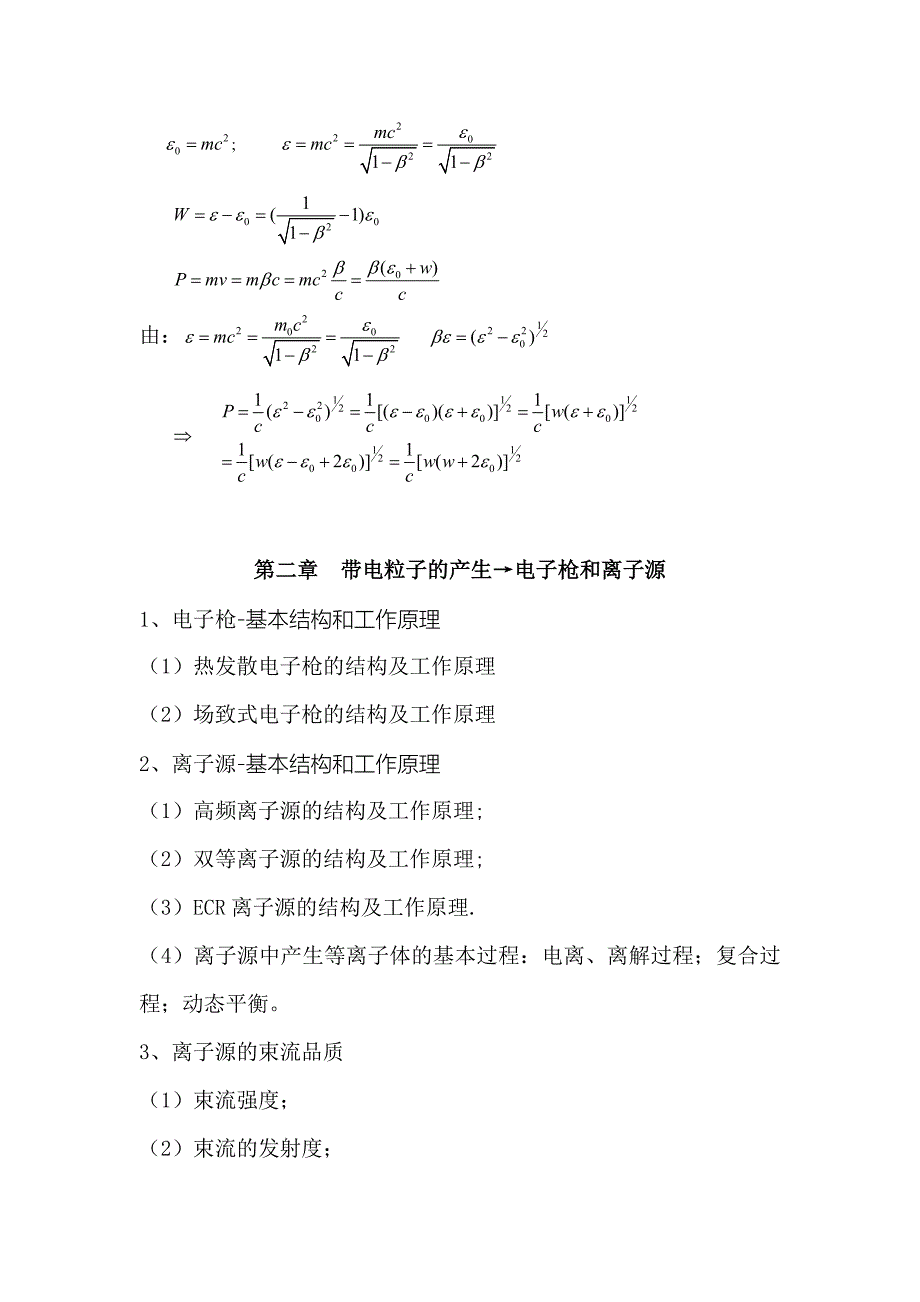 ε₀ = mc²;  ε = mc² = mc²/√(1−β²) = ε₀/√(1−β²)
W = ε − ε₀ = (1/√(1−β²) −1)ε₀
P = mv = mβc = mc² β/c = β(ε₀ + w)/c
由：ε = mc² = m₀c²/√(1−β²) = ε₀/√(1−β²)  βε = (ε² − ε₀²)^½
⇒ P = 1/c (ε² − ε₀²)^½ = 1/c [(ε − ε₀)(ε + ε₀)]^½ = 1/c [w(ε + ε₀)]^½
= 1/c [w(ε − ε₀ + 2ε₀)]^½ = 1/c [w(w + 2ε₀)]^½
第二章 带电粒子的产生→电子枪和离子源
1、电子枪-基本结构和工作原理
（1）热发散电子枪的结构及工作原理
（2）场致式电子枪的结构及工作原理
2、离子源-基本结构和工作原理
（1）高频离子源的结构及工作原理;
（2）双等离子源的结构及工作原理;
（3）ECR 离子源的结构及工作原理.
（4）离子源中产生等离子体的基本过程：电离、离解过程；复合过
程；动态平衡。
3、离子源的束流品质
（1）束流强度；
（2）束流的发射度；